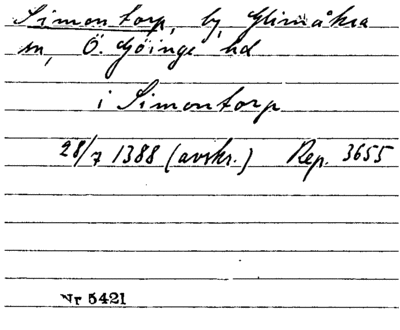 Simontorp, by, Glimåkra
sn, Ö. Göinge hd
i Simontorp
28/7 1388 (avskr.) Rep. 3655
Nr 5421